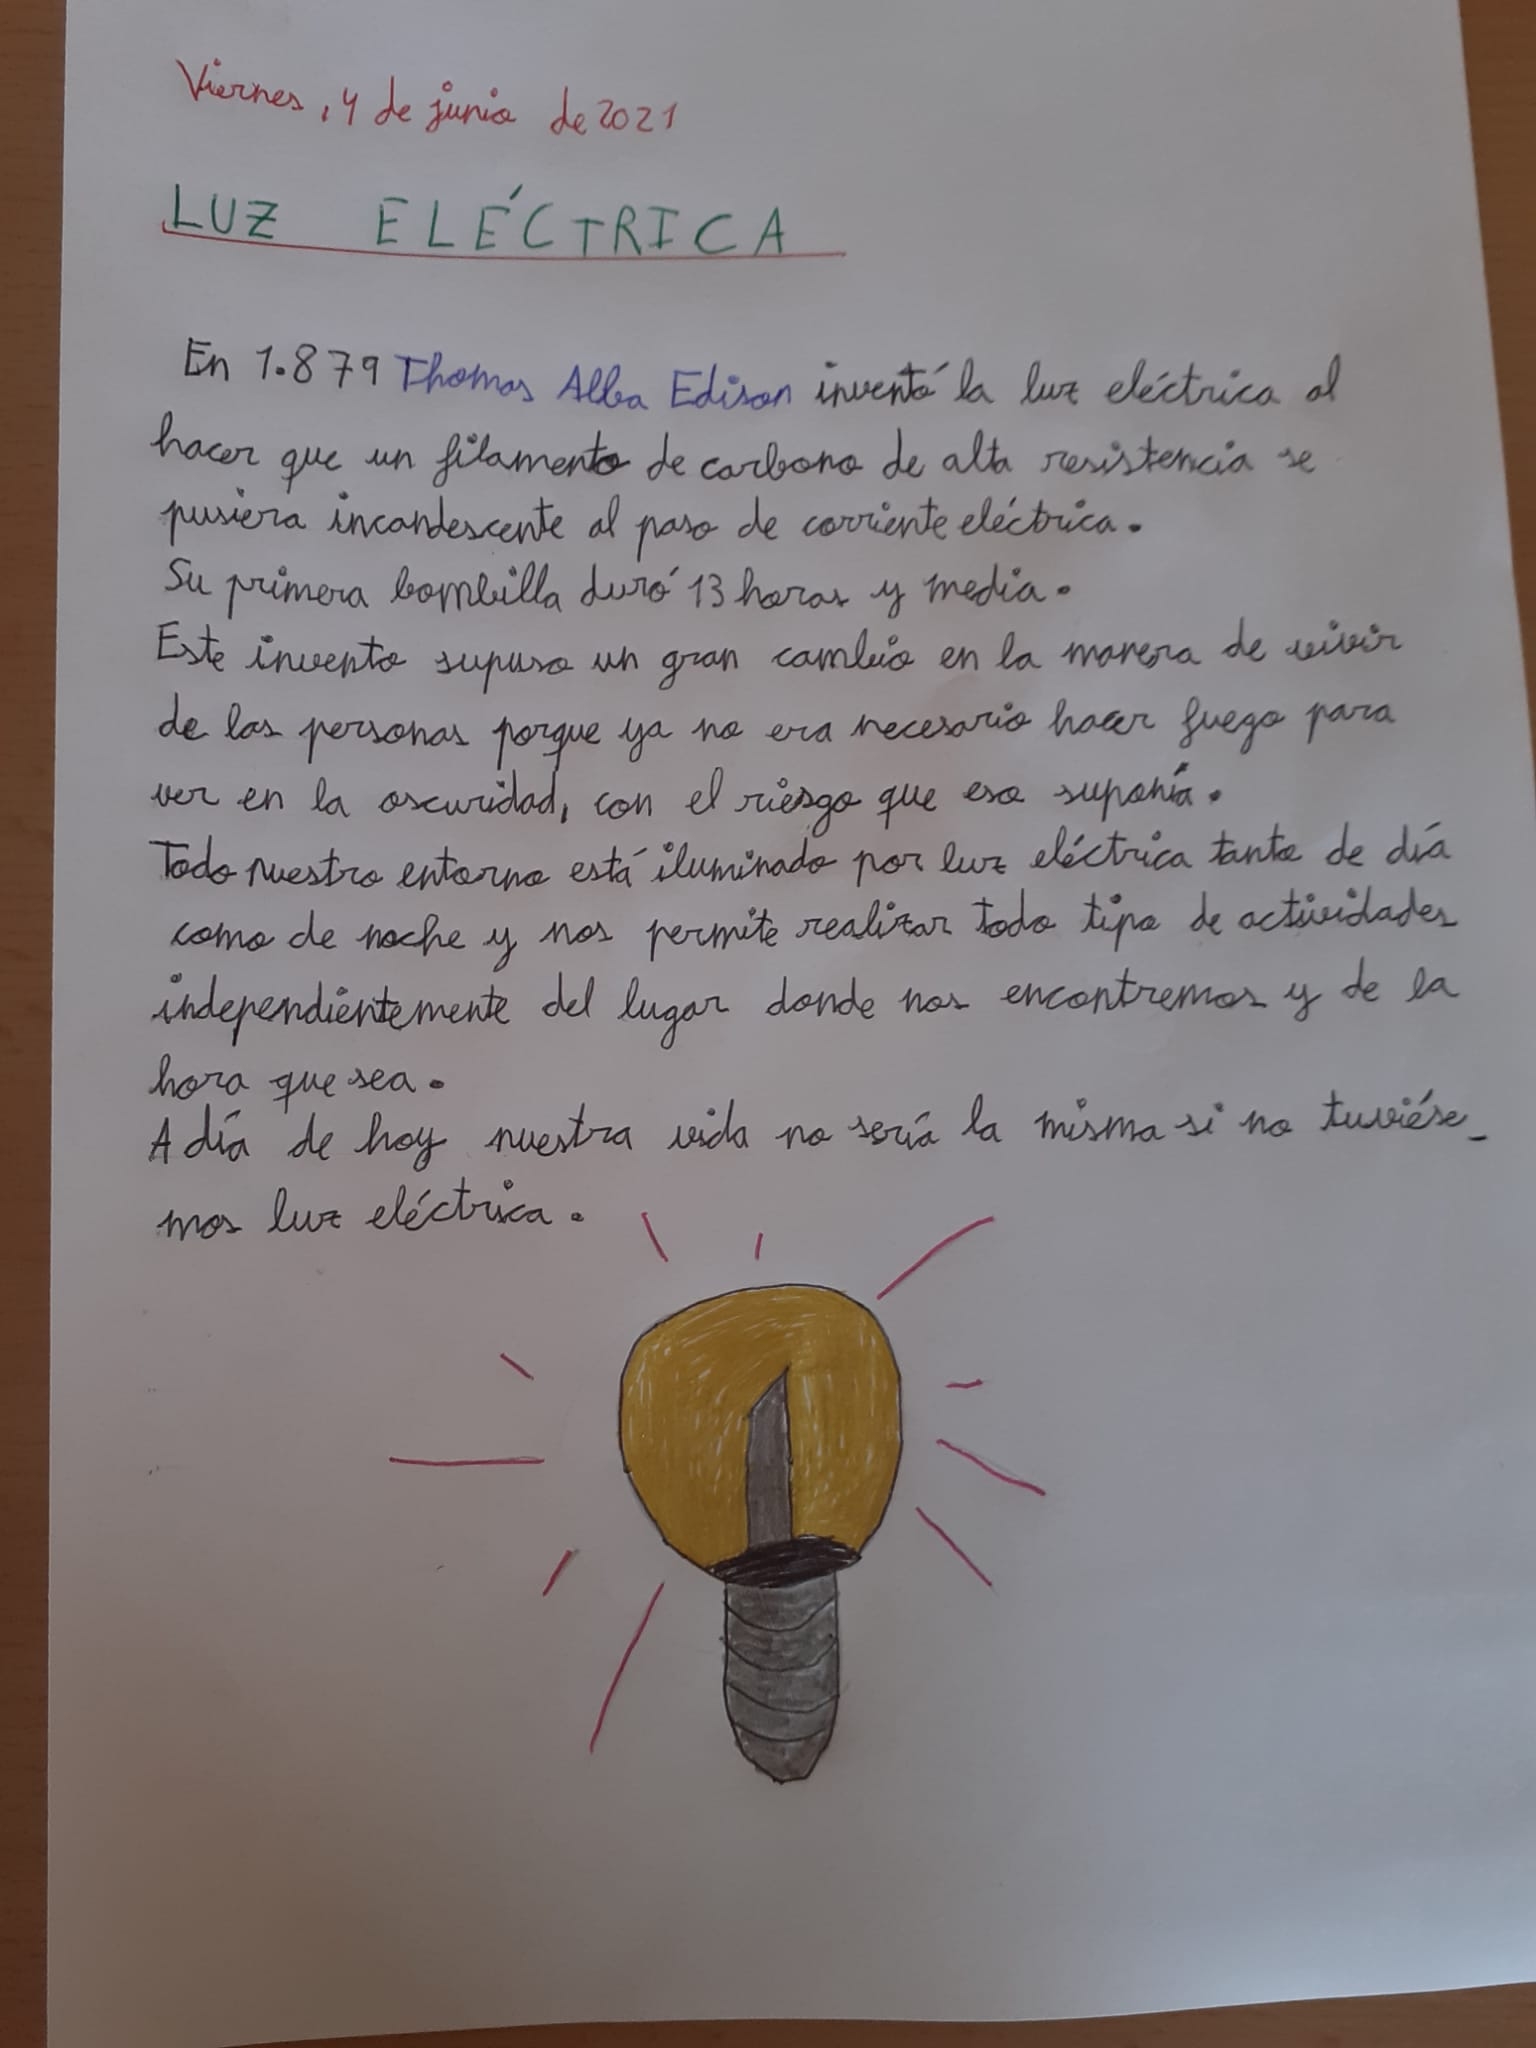 Viernes, 4 de junio de 2021
LUZ ELÉCTRICA
En 1.879 Thomas Alba Edison inventó la luz eléctrica al
hacer que un filamento de carbono de alta resistencia se
pusiera incandescente al paso de corriente eléctrica.
Su primera bombilla duró 13 horas y media.
Este invento supuso un gran cambio en la manera de vivir
de las personas porque ya no era necesario hacer fuego para
ver en la oscuridad, con el riesgo que eso suponía.
Todo nuestro entorno está iluminado por luz eléctrica tanto de día
como de noche y nos permite realizar todo tipo de actividades
independientemente del lugar donde nos encontremos y de la
hora que sea.
A día de hoy nuestra vida no sería la misma si no tuviése_
mos luz eléctrica.